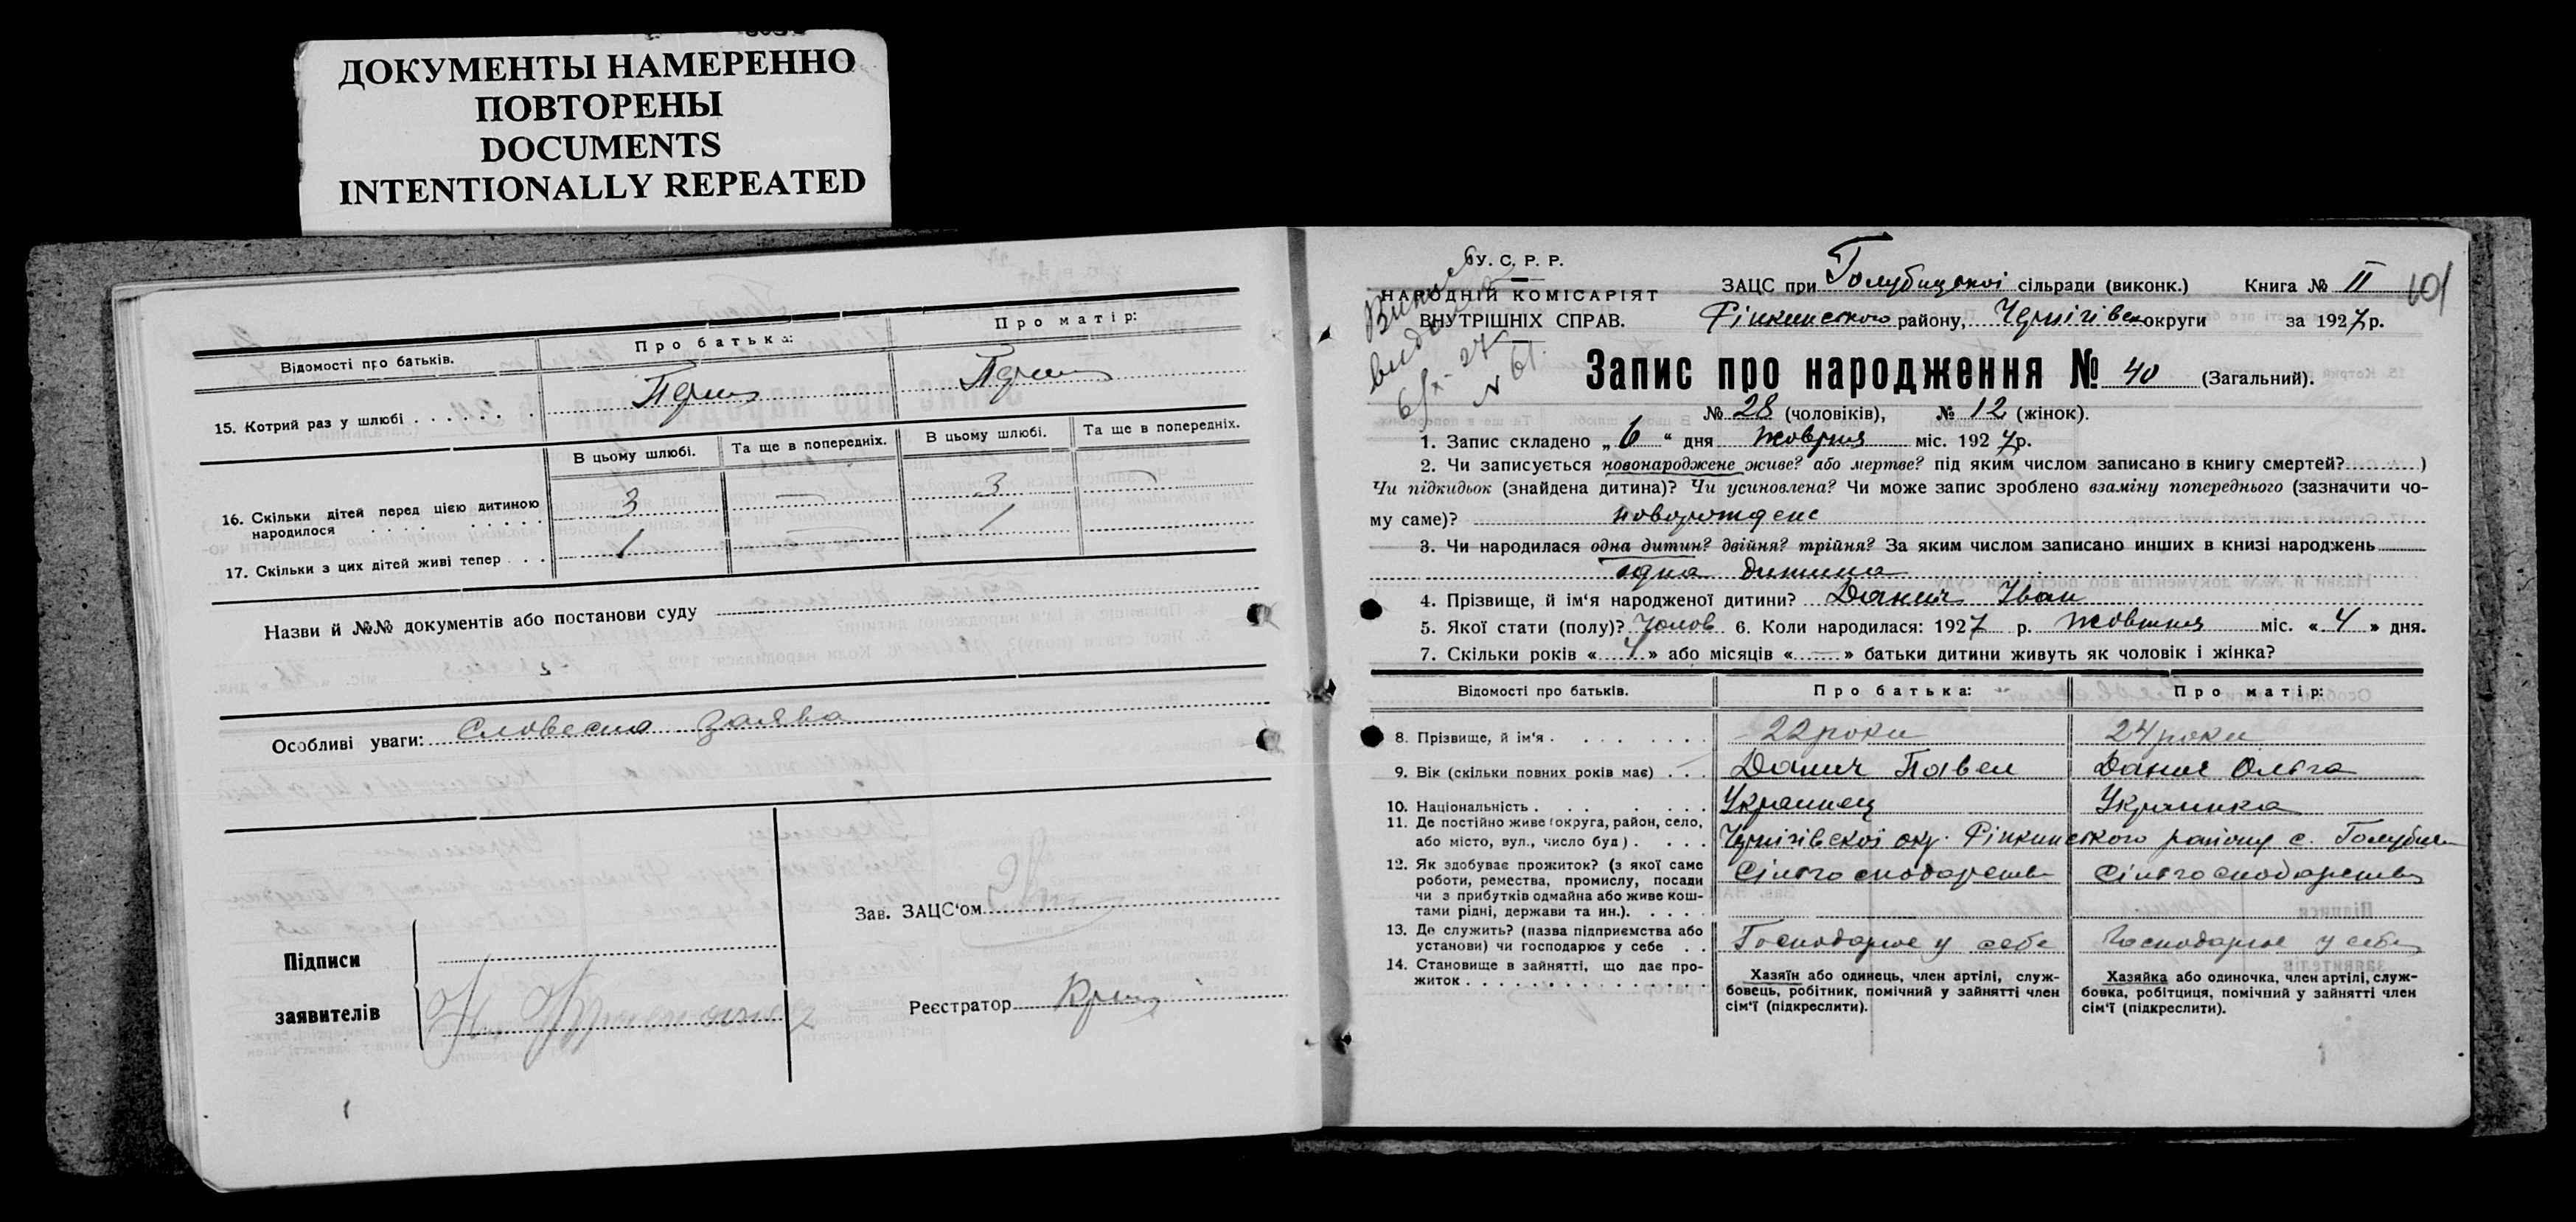 ДОКУМЕНТЫ НАМЕРЕННО
ПОВТОРЕНЫ
DOCUMENTS
INTENTIONALLY REPEATED
Відомості про батьків.
Про батька:
Про матір:
15. Котрий раз у шлюбі
В цьому шлюбі. Та ще в попередніх. В цьому шлюбі. Та ще в попередніх.
16. Скільки дітей перед цією дитиною
народилося 3 — 3 —
17. Скільки з цих дітей живі тепер 1 — 1
Назви й №№ документів або постанови суду
Особливі уваги: Словесна заява
Підписи
заявителів
Зав. ЗАЦС'ом
Реєстратор
У. С. Р. Р.
НАРОДНІЙ КОМІСАРІЯТ
ВНУТРІШНІХ СПРАВ.
ЗАЦС при Голубицької сільради (виконк.) Книга № II 101
Ріпкинського району, Чернігівськ округи за 1927 р.
Запис про народження № 40 (Загальний).
№ 28 (чоловіків), № 12 (жінок).
1. Запис складено „6“ дня жовтня міс. 1927 р.
2. Чи записується новонароджене живе? або мертве? під яким числом записано в книгу смертей? )
Чи підкидьок (знайдена дитина)? Чи усиновлена? Чи може запис зроблено взаміну попереднього (зазначити чо-
му саме)? новорожденс
3. Чи народилася одна дитин? двійня? трійня? За яким числом записано инших в книзі народжень
одна дитина
4. Прізвище, й ім'я народженої дитини? Данич Іван
5. Якої стати (полу)? Чолов 6. Коли народилася: 1927 р. жовтня міс. «4» дня.
7. Скільки років «4» або місяців «—» батьки дитини живуть як чоловік і жінка?
Відомості про батьків. Про батька: Про матір:
8. Прізвище, й ім'я 22 роки 24 роки
9. Вік (скільки повних років має) Данич Павел Данич Ольга
10. Національність Украинец Украинка
11. Де постійно живе (округа, район, село,
або місто, вул., число буд) Чернігівскої окр. Ріпкинського району с. Голубичі
12. Як здобуває прожиток? (з якої саме
роботи, ремества, промислу, посади
чи з прибутків одмайна або живе кош-
тами рідні, держави та ин.). Сільгосподарство Сільгосподарство
13. Де служить? (назва підприємства або
установи) чи господарює у себе Господарює у себе Господарює у себе
14. Становище в зайнятті, що дає про-
житок
Хазяїн або одинець, член артілі, служ-
бовець, робітник, помічний у зайнятті член
сім'ї (підкреслити).
Хазяйка або одиночка, член артілі, служ-
бовка, робітниця, помічний у зайнятті член
сім'ї (підкреслити).